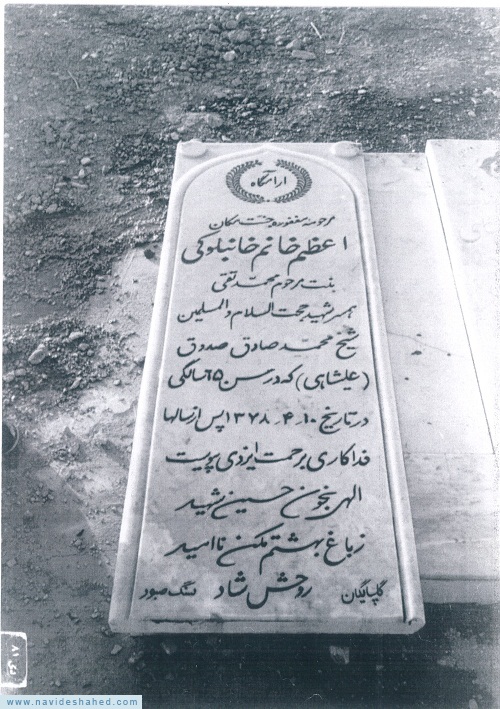 آرامگاه
مرحومه مغفوره جنت مکان
اعظم خانم خانبلوکی
بنت مرحوم محمد تقی
همسر شهید حجت السلام والمسلمین
شیخ محمد صادق صدوق
(علیشاهی) که در سن ۶۵ سالگی
در تاریخ ۱۰-۴-۱۳۷۸ پس از سالها
فداکاری برحمت ایزدی پیوست
الهی بخون حسین شهید
زباغ بهشتم مکن ناامید
روحش شاد
گلپایگان
سنگ صبور
www.navideshahed.com